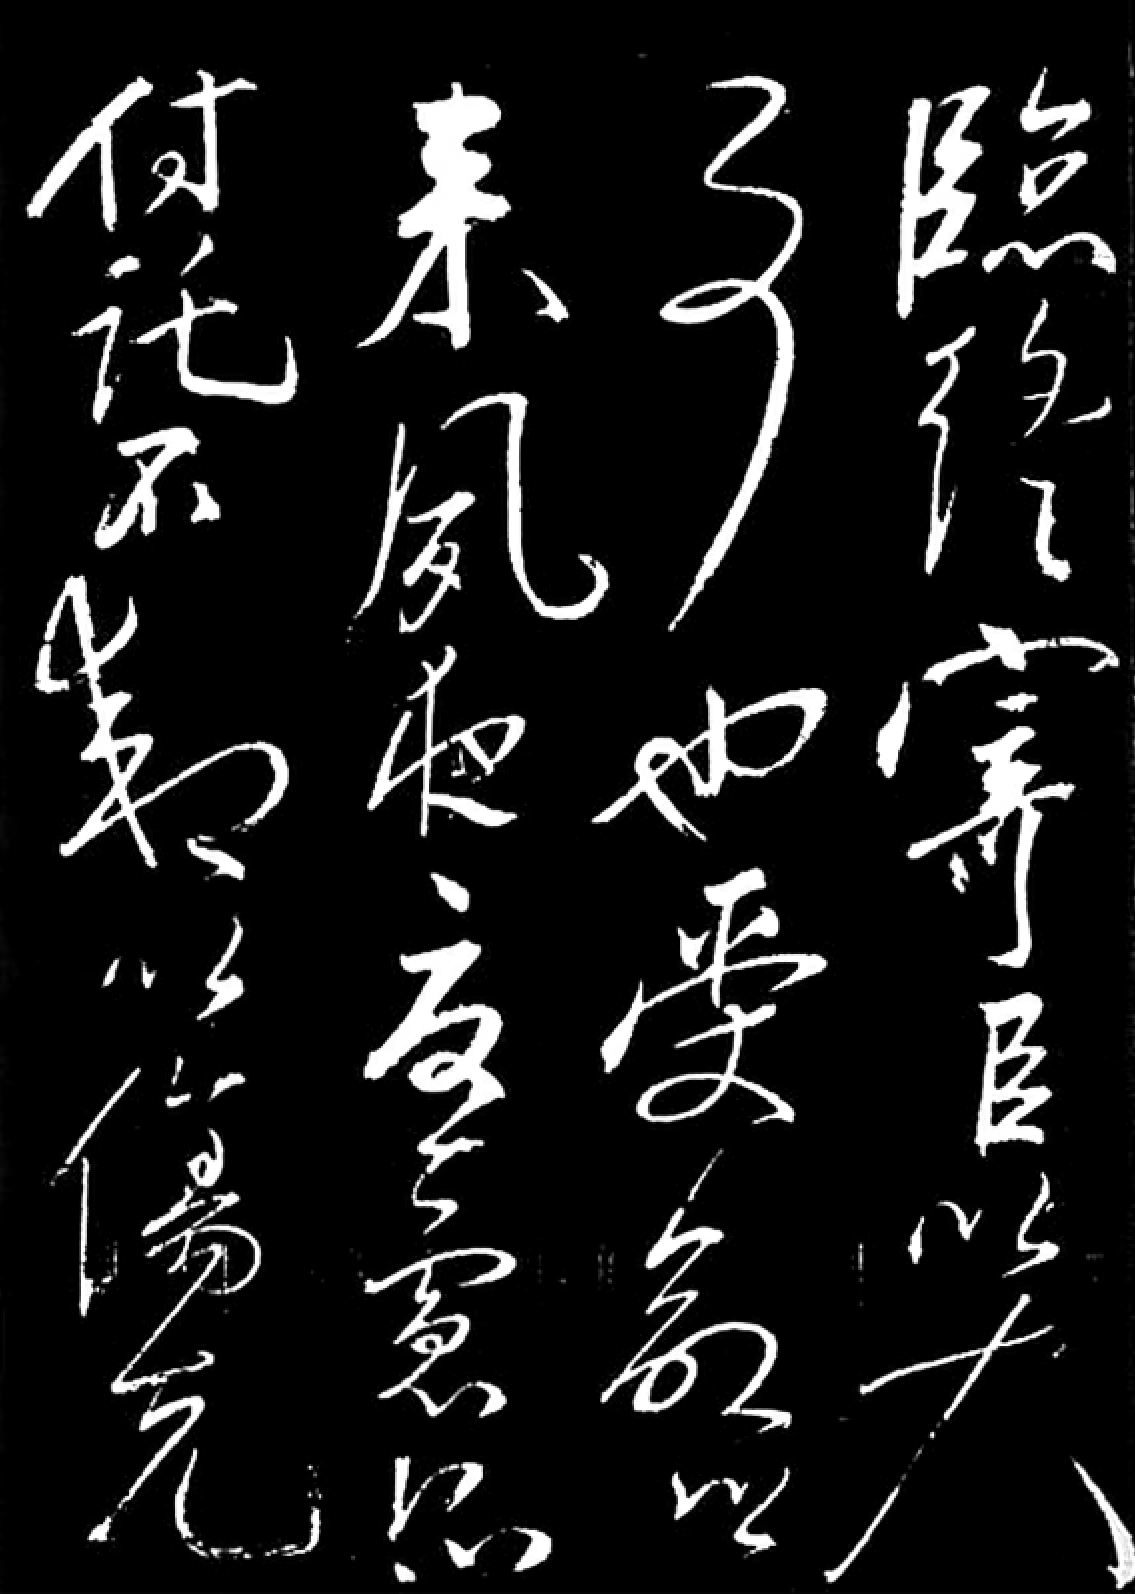 臨終寄臣以大
事也受命以
来夙夜憂慮恐
付託不效以傷先